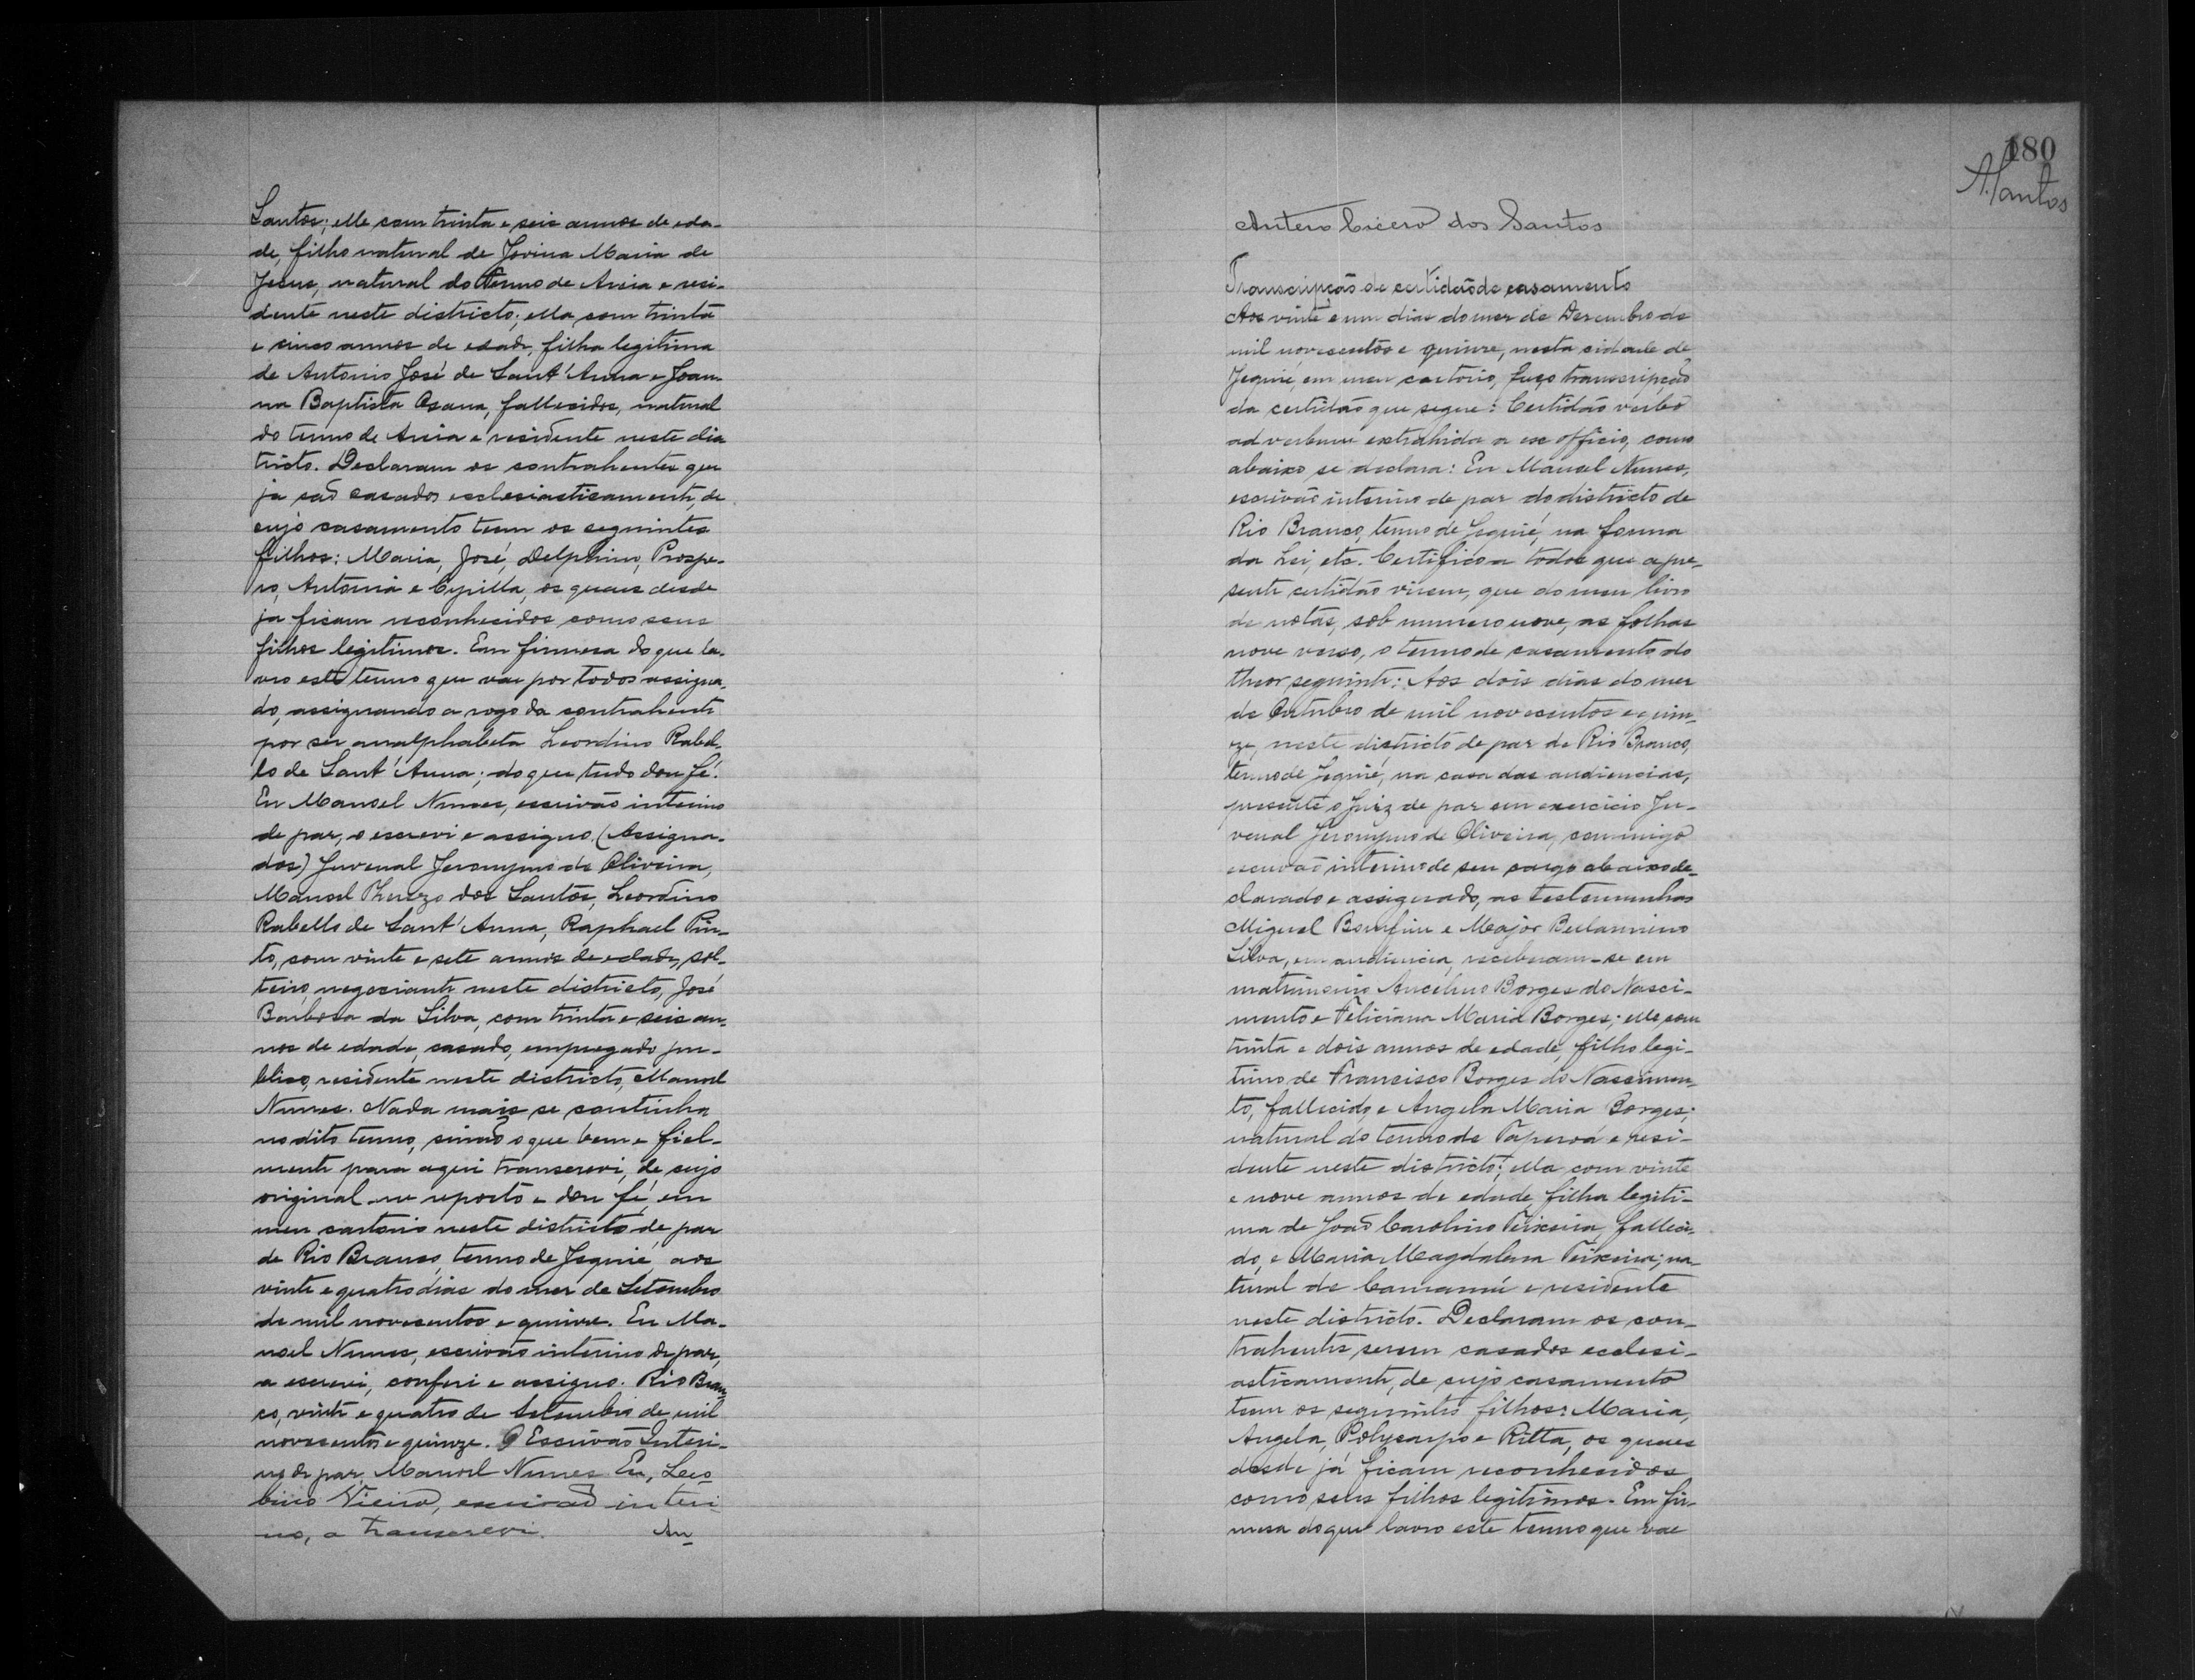 Santos; elle com trinta e seis annos de eda-
de, filho natural de Jovina Maria de
Jesus, natural do termo de Areia e resi-
dente neste districto; ella com trinta
e cinco annos de edade, filha legitima
de Antonio José de Sant'Anna e Joan-
na Baptista Osana, fallecidos, natural
do termo de Areia e residente neste dis
tricto. Declaram os contrahentes que
ja saõ casados ecclesiasticamente, de
cujo casamento teem os seguintes
filhos: Maria, José, Delphino, Prospe-
ro, Antonia e Cyrilla, os quaes desde
ja ficam reconhecidos como seus
filhos legitimos. Em firmesa do que la-
vro este termo que vae por todos assigna-
do, assignando a rogo da contrahente
por ser analphabeta Leordino Rabel-
lo de Sant'Anna; do que tudo dou fé.
Eu Manoel Nunes, escrivão interino
de paz, o escrevi e assigno. (Assigna-
dos) Juvenal Jeronymo de Oliveira,
Manoel dos Santos, Leordino
Rabello de Sant'Anna, Raphael Pin-
to, com vinte e sete annos de edade, sol-
teiro, negociante neste districto, José
Barbosa da Silva, com trinta e seis an-
nos de edade, casado, empregado pu-
blico, residente neste districto, Manoel
Nunes. Nada mais se continha
no dito termo, sinão o que bem e fiel-
mente para aqui transcrevi, de cujo
original me reporto e dou fé, em
meu cartorio neste districto de paz
de Rio Branco, termo de Jequié, aos
vinte e quatro dias do mez de Setembro
de mil novecentos e quinze. Eu Ma-
noel Nunes, escrivão interino de paz,
a escrevi, conferi e assigno. Rio Bran-
co, vinte e quatro de Setembro de mil
novecentos e quinze. O Escrivão Interi-
no de paz, Manoel Nunes. Eu, Leo
bino Vieira, escrivaõ interi
no, a transcrevi. An
180
ASantos
Antero Cicero dos Santos
Transcripção de certidaõ de casamento
Aos vinte e um dias do mez de Dezembro de
mil novecentos e quinze, nesta cidade de
Jequié, em meu cartorio, faço transcripção
da certidão que segue: Certidão verbo
ad verbum extrahida a ex officio, como
abaixo se declara: Eu Manoel Nunes,
escrivão interino de paz do districto de
Rio Branco, termo de Jequié, na forma
da Lei, etc. Certifico a todos que a pre-
sente certidão virem, que do meu livro
de notas, sob numero nove, as folhas
nove verso, o termo de casamento do
theor seguinte: Aos dois dias do mez
de Outubro de mil novecentos e quin-
ze, neste districto de paz de Rio Branco,
termo de Jequié, na casa das audiencias,
presente o Juiz de paz em exercicio Ju-
venal Jeronymo de Oliveira, commigo
escrivaõ interino de seu cargo abaixo de-
clarado e assignado, as testemunhas
Miguel Bomfim e Major Belarmino
Silva, em audiencia, receberam-se em
matrimonio Ancelmo Borges do Nasci-
mento e Feliciana Maria Borges; elle com
trinta e dois annos de edade, filho legi-
timo de Francisco Borges do Nascimen-
to, fallecido e Angela Maria Borges;
natural do termo de Taperoá e resi-
dente neste districto; ella com vinte
e nove annos de edade filha legiti-
ma de Joaõ Carolino Teixeira, falleci-
do, e Maria Magdalena Teixeira; na-
tural de Camamú e residente
neste districto. Declaram os con-
trahentes serem casados ecclesi-
asticamente, de cujo casamento
teem os seguintes filhos: Maria,
Angela, Polycarpo e Ritta, os quaes
desde já ficam reconhecidos
como seus filhos legitimos. Em fir-
mesa do que lavro este termo que vae